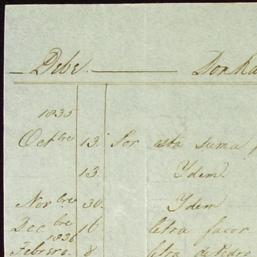 Debe. Don Ra
1835
Octbre 13. Por esta suma p
13. Ydem
Novbre 30. Ydem
Decbre 16. letra favor
1836
Febrero. 8 letra de Pedro